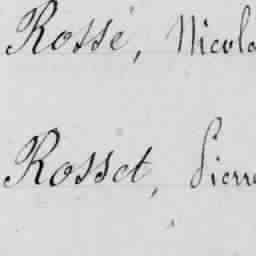 Rossé, Nicola
Rosset, Pierre